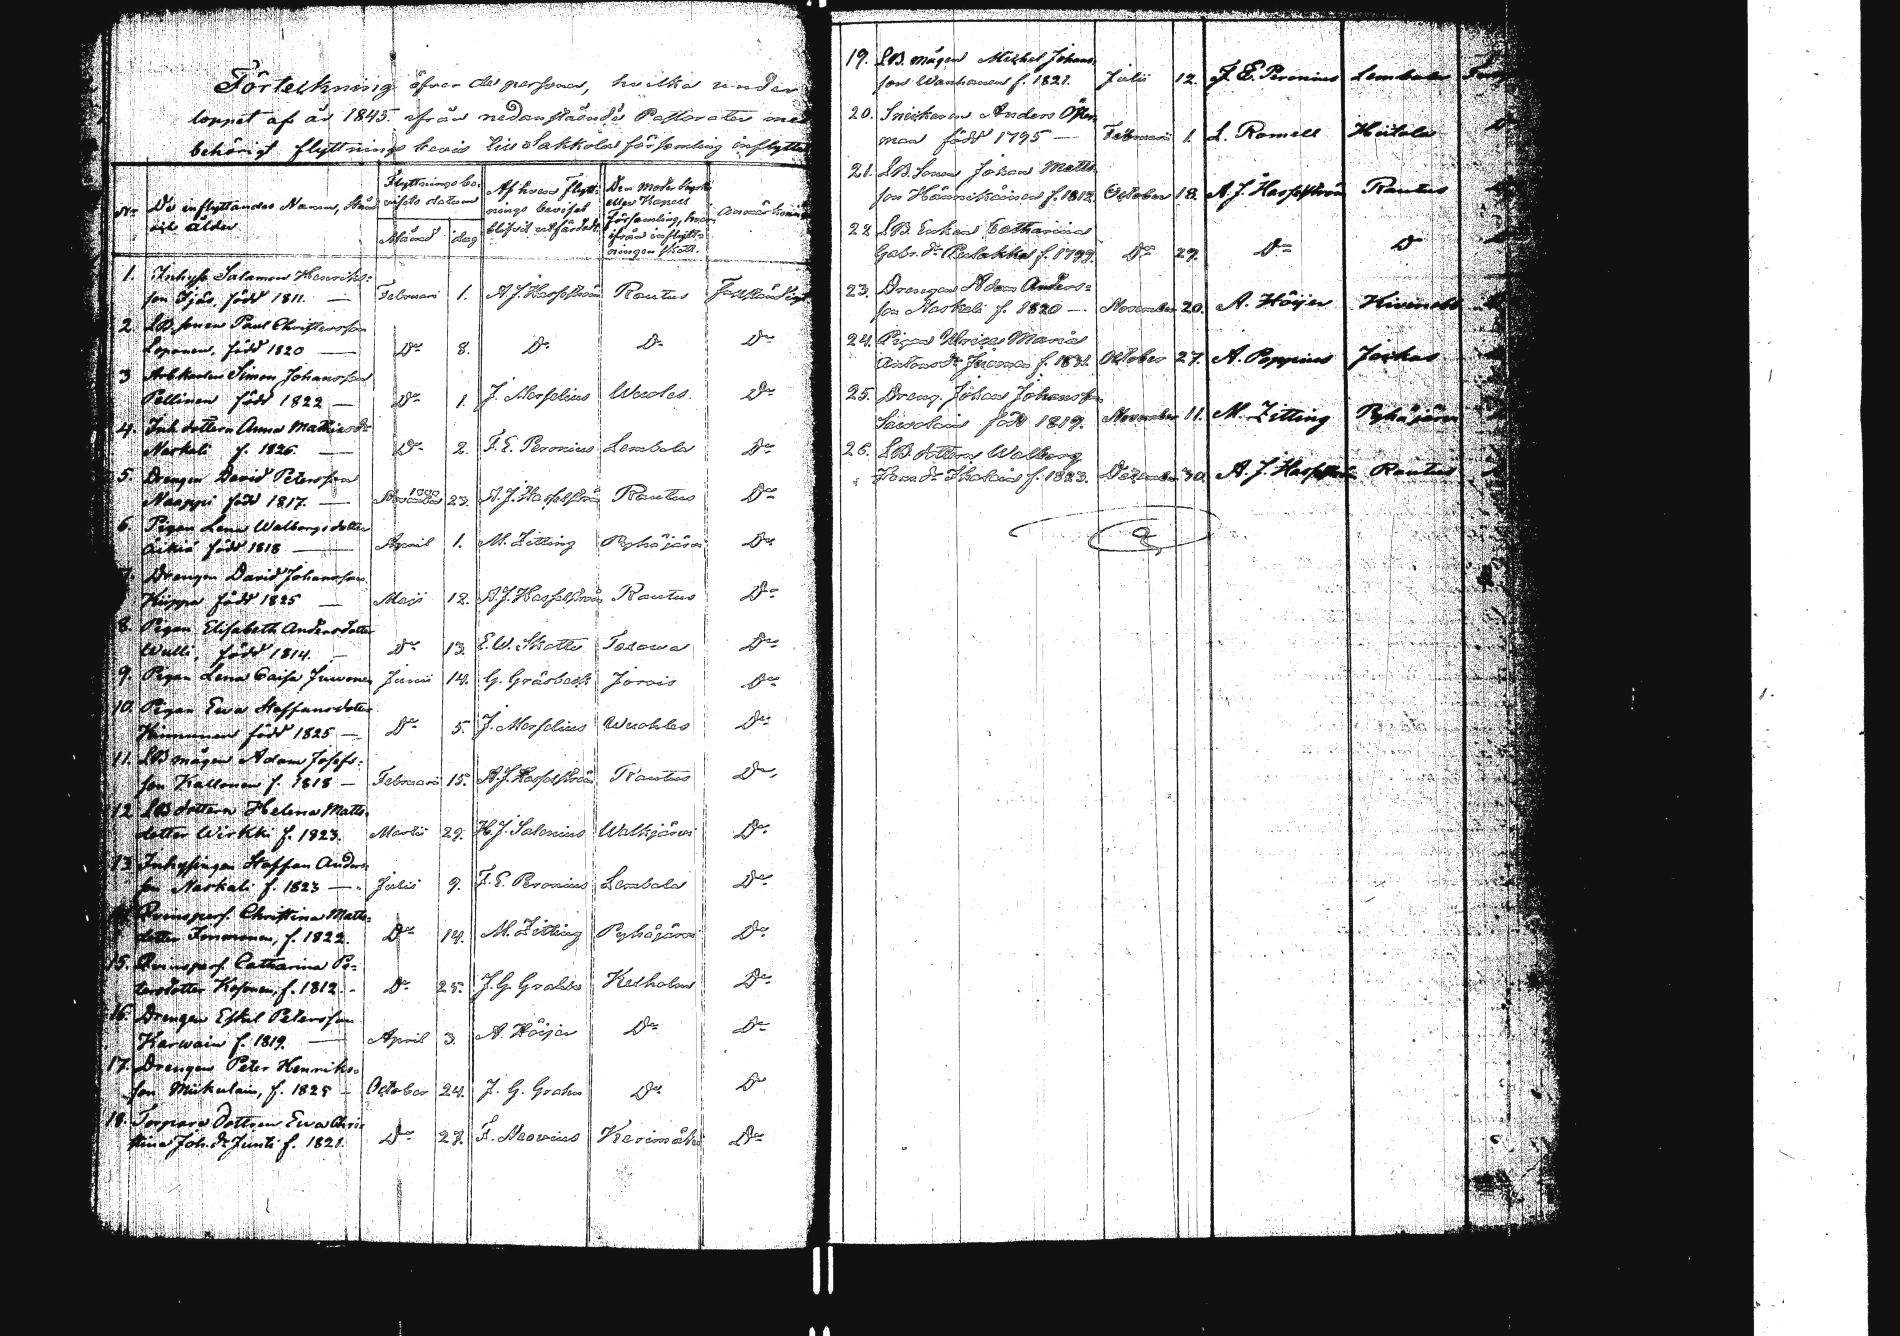 Förteckning öfver de personer, hvilka under
loppet af år 1845 ifrån nedanstående Pastorater med
behörigt flyttnings bevis till Sakkola församling inflyttat
No De inflyttandes Namn, Stånd
och ålder.
Flyttningsbe-
visets datum
Månad dag
Af hvem Flytt-
nings beviset
blifvit utfärdadt.
Den Moder kyrko
eller Kapell
Församling, hvar-
ifrån inflytt-
ningen skett.
Anmärkning
1. Inhyss Salamon Henriks-
son Ijäs, född 1811. — Februari 1. A J Hasselström Rautus
2. LB. sonen Paul Christersson
Loponen, född 1820 — Do 8. Do Do Do
3 Simon Johansson
Pellinen född 1822 — Do 1. J. Meselius Wuoles. Do
4. Inh. dottern Anna Mathiasdr
Naskali f. 1826. — Do 2. F. E. Peronius Lembala Do
5. Drengen David Petersson
Naappi född 1817. — 23. A. J. Hasselströ Rautus Do
6. Pigan Lena Walborgsdotter
Äikiä född 1818 — April 1. M. Zitting Pyhäjärvi Do
7. Drengen David Johansson
Kiippa född 1825 — Maji 12. A. J. Hasselström Rautus Do
8. Pigan Elisabeth Andersdotter
Walli, född 1814. — Do 13. E. W. Skotte Do
9. Pigan Lena Caisa Juvonen Junii 14. G. Gråsbeck Jorois Do
10. Pigan Eva Staffansdotter
Kinnunen född 1825 — Do 5. J. Meselius Wuohles Do
11. LB mågen Adam Josefs-
son Kallonen f. 1818 — Februari 15. A. J. Hasselström Rautus Do,
12 LB dottern Helena Matts-
dotter Wirkki f. 1823. Martii 29. H. J. Salenius Walkjärvi Do
13 Inhysingen Staffan Anders-
son Naskali f. 1823 — Julii 9. F. E. Peronius Lembala Do
14 Qvinspers. Christina Matts-
dotter f. 1822. Do 14. M. Zitting Pyhäjärvi Do
15. Qvinspers. Catharina Pe-
tersdotter Kosonen, f. 1812. Do 25. J. G. Grahn Kexholm Do
16. Drengen Eskel Petersson
Karwain f. 1819. — April 3. A. Höijer Do Do
17. Drengen Peter Henriks-
son Miikulain, f. 1825 — October 24. J. G. Grahn Do Do
18. Torpare Dottren Eva Chris-
tina Joh. dr Junti f. 1821. Do 27. F. Neovius Kerimäki Do
19. LB. mågen Michel Johans-
son Wanhanen f. 1821. Julii 12. F. E. Peronius Lembala
20. Anders
man född 1795 — Februari 1. L. Romell Hiitola Do
21. LB Sonen Johan Matts-
son Hännikäinen f. 1812. October 18. A. J. Hasselström Rautus
22 LB Enkan Catharina
Gabr. dr f. 1799. Do 29. Do Do
23. Drengen Adam Anders-
son Naskali f. 1820 — November 20. A. Höijer Kivinebb
24. Pigan Ulrica Maria
October 27. A. Poppius Jockas
25. Dreng. Johan Johansson
född 1819. November 11. M. Zitting Pyhäjärvi
26. LB dottern Walborg
f. 1823. December 30. A. J. Hasselström Rautus